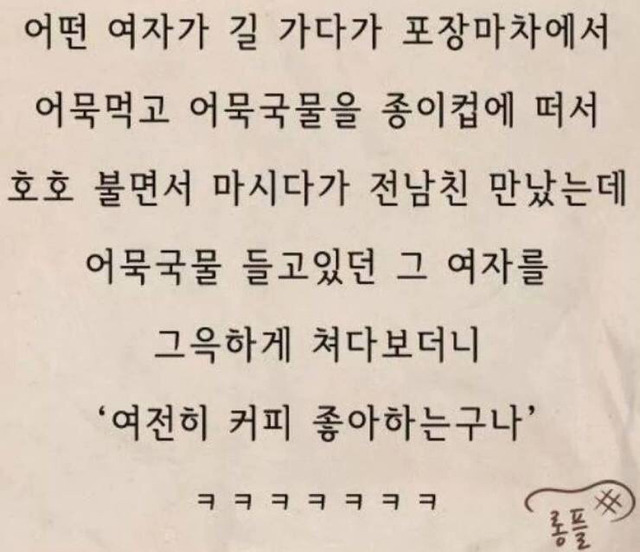 어떤 여자가 길 가다가 포장마차에서
어묵먹고 어묵국물을 종이컵에 떠서
호호 불면서 마시다가 전남친 만났는데
어묵국물 들고있던 그 여자를
그윽하게 쳐다보더니
‘여전히 커피 좋아하는구나’
ㅋㅋㅋㅋㅋㅋㅋ
롱플